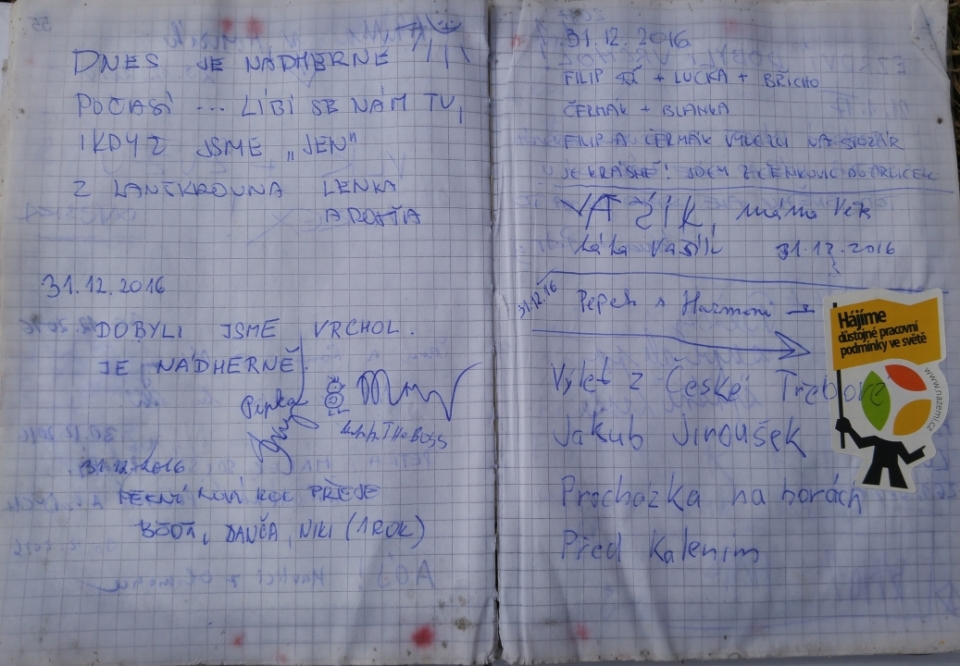 DNES JE NÁDHERNÉ
POČASÍ ... LÍBÍ SE NÁM TU,
I KDYŽ JSME „JEN“
Z LANŠKROUNA LENKA
A
31.12.2016
DOBYLI JSME VRCHOL.
JE NÁDHERNĚ.
Pipka
THE BOSS
31.12.2016
PĚKNÝ NOVÝ ROK PŘEJE
DANČA, NIKI (1 ROK)
31.12.2016
FILIP + LUCKA + BŘICHO
ČERMÁK + BLANKA
FILIP A ČERMÁK VYLEZLI NA STOŽÁR
JE KRÁSNĚ! JDEM Z ČENKOVIC DO ORLIČEK
VAŠÍK, máma Věra
táta Vašík 31.12.2016
31.12.16
Pepek s Harmoni →
Výlet z České Třebove
Jakub Jiroušek
Prochazka na horách
Před Kalením
Hájíme
důstojné pracovní
podmínky ve světě
www.nazemi.cz